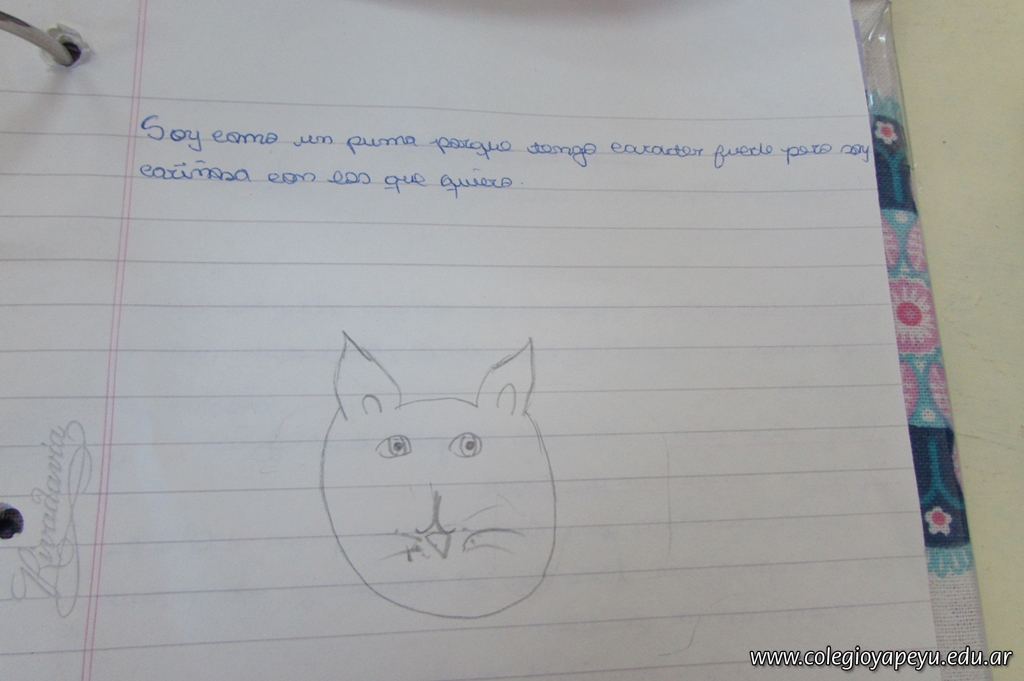 Soy como un puma porque tengo caracter fuerte pero soy
cariñosa con los que quiero.
Rivadavia
www.colegioyapeyu.edu.ar